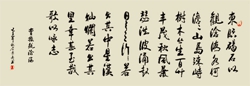 東臨碣石以
觀滄海水何
澹澹山島竦峙
樹木叢生百草
豐茂秋風蕭
瑟洪波涌起
日月之行若
出其中星漢
燦爛若出其
里幸甚至哉
歌以咏志
曹操觀滄海